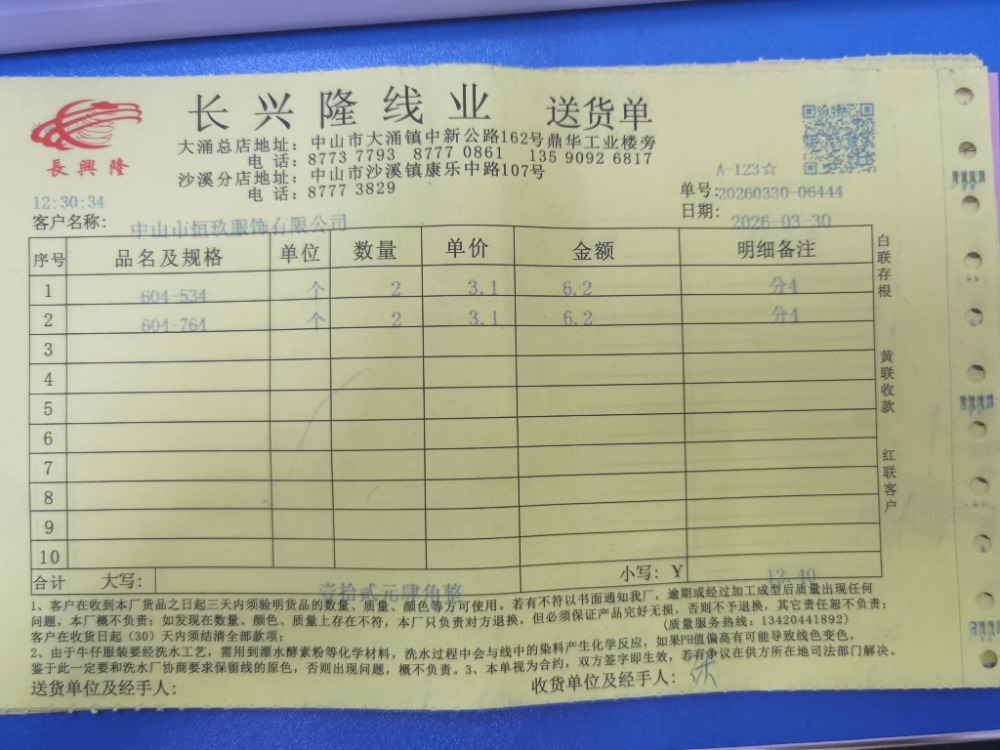 長興隆
长兴隆线业 送货单
大涌总店地址：中山市大涌镇中新公路162号鼎华工业楼旁
电 话：8773 7793 8777 0861 135 9092 6817
沙溪分店地址：中山市沙溪镇康乐中路107号
电 话：8777 3829
A-123☆
12:30:34
单号:20260330-06444
客户名称： 中山市恒玖服饰有限公司
日期: 2026-03-30
序号 品名及规格 单位 数量 单价 金额 明细备注
1 604-534 个 2 3.1 6.2 分4
2 604-764 个 2 3.1 6.2 分4
3
4
5
6
7
8
9
10
合计 大写： 壹拾贰元肆角整 小写：￥ 12.40
白联存根
黄联收款
红联客户
1、客户在收到本厂货品之日起三天内须验明货品的数量、质量、颜色等方可使用。若有不符以书面通知我厂，逾期或经过加工成型后质量出现任何
问题，本厂概不负责；如发现在数量、颜色、质量上存在不符，本厂只负责对方退换，但必须保证产品完好无损，否则不予退换，其它责任恕不负责；
客户在收货日起（30）天内须结清全部款项； (质量服务热线：13420441892)
2、由于牛仔服装要经洗水工艺，需用到漂水酵素粉等化学材料，洗水过程中会与线中的染料产生化学反应，如果PH值偏高有可能导致线色变色，
鉴于此一定要和洗水厂协商要求保留线的原色，否则出现问题，概不负责。3、本单视为合约，双方签字即生效，若有争议在供方所在地司法部门解决。
送货单位及经手人： 收货单位及经手人：